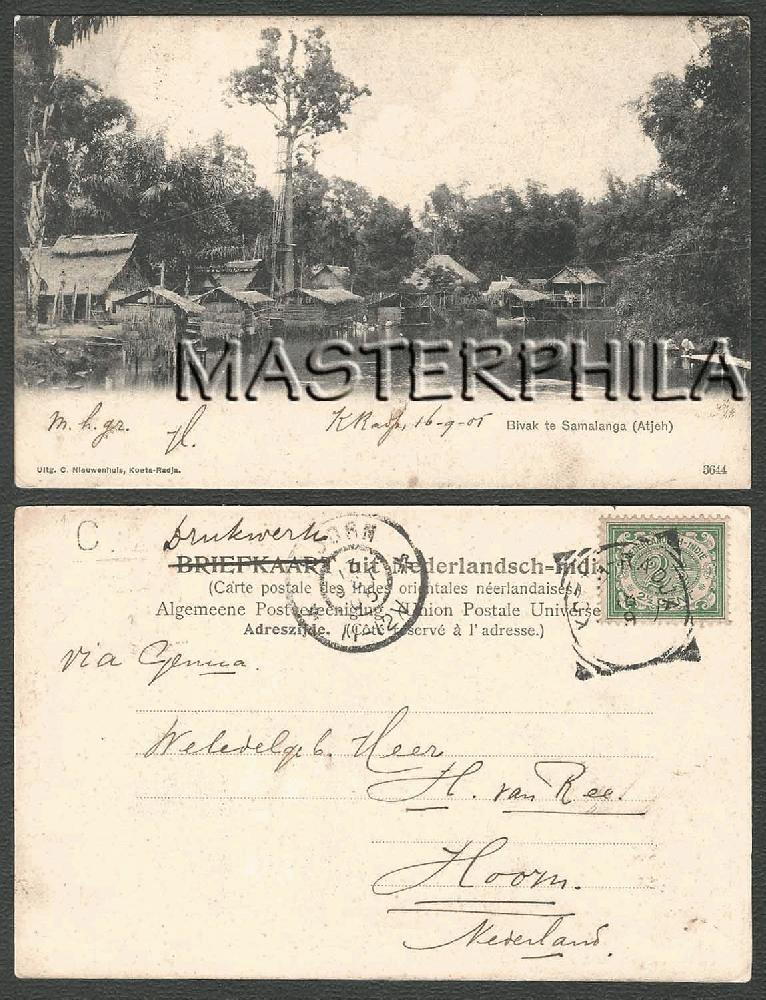 MASTERPHILA
M. h. gr.
K Radja, 16-9-05
Bivak te Samalanga (Atjeh)
Uitg. C. Nieuwenhuis, Koeta-Radja.
3644
C
Drukwerk
BRIEFKAART uit Nederlandsch-Indi
(Carte postale des Indes orientales néerlandaises)
Algemeene Postvereeniging Union Postale Universe
Adreszijde. (Côté réservé à l'adresse.)
HOORN
via Genua.
Weledelgeb. Heer
H. van Ree.
Hoorn.
Nederland.